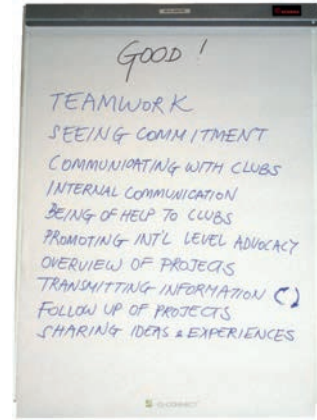 GOOD!
TEAMWORK
SEEING COMMITMENT
COMMUNICATING WITH CLUBS
INTERNAL COMMUNICATION
BEING OF HELP TO CLUBS
PROMOTING INT'L LEVEL ADVOCACY
OVERVIEW OF PROJECTS
TRANSMITTING INFORMATION
FOLLOW UP OF PROJECTS
SHARING IDEAS & EXPERIENCES